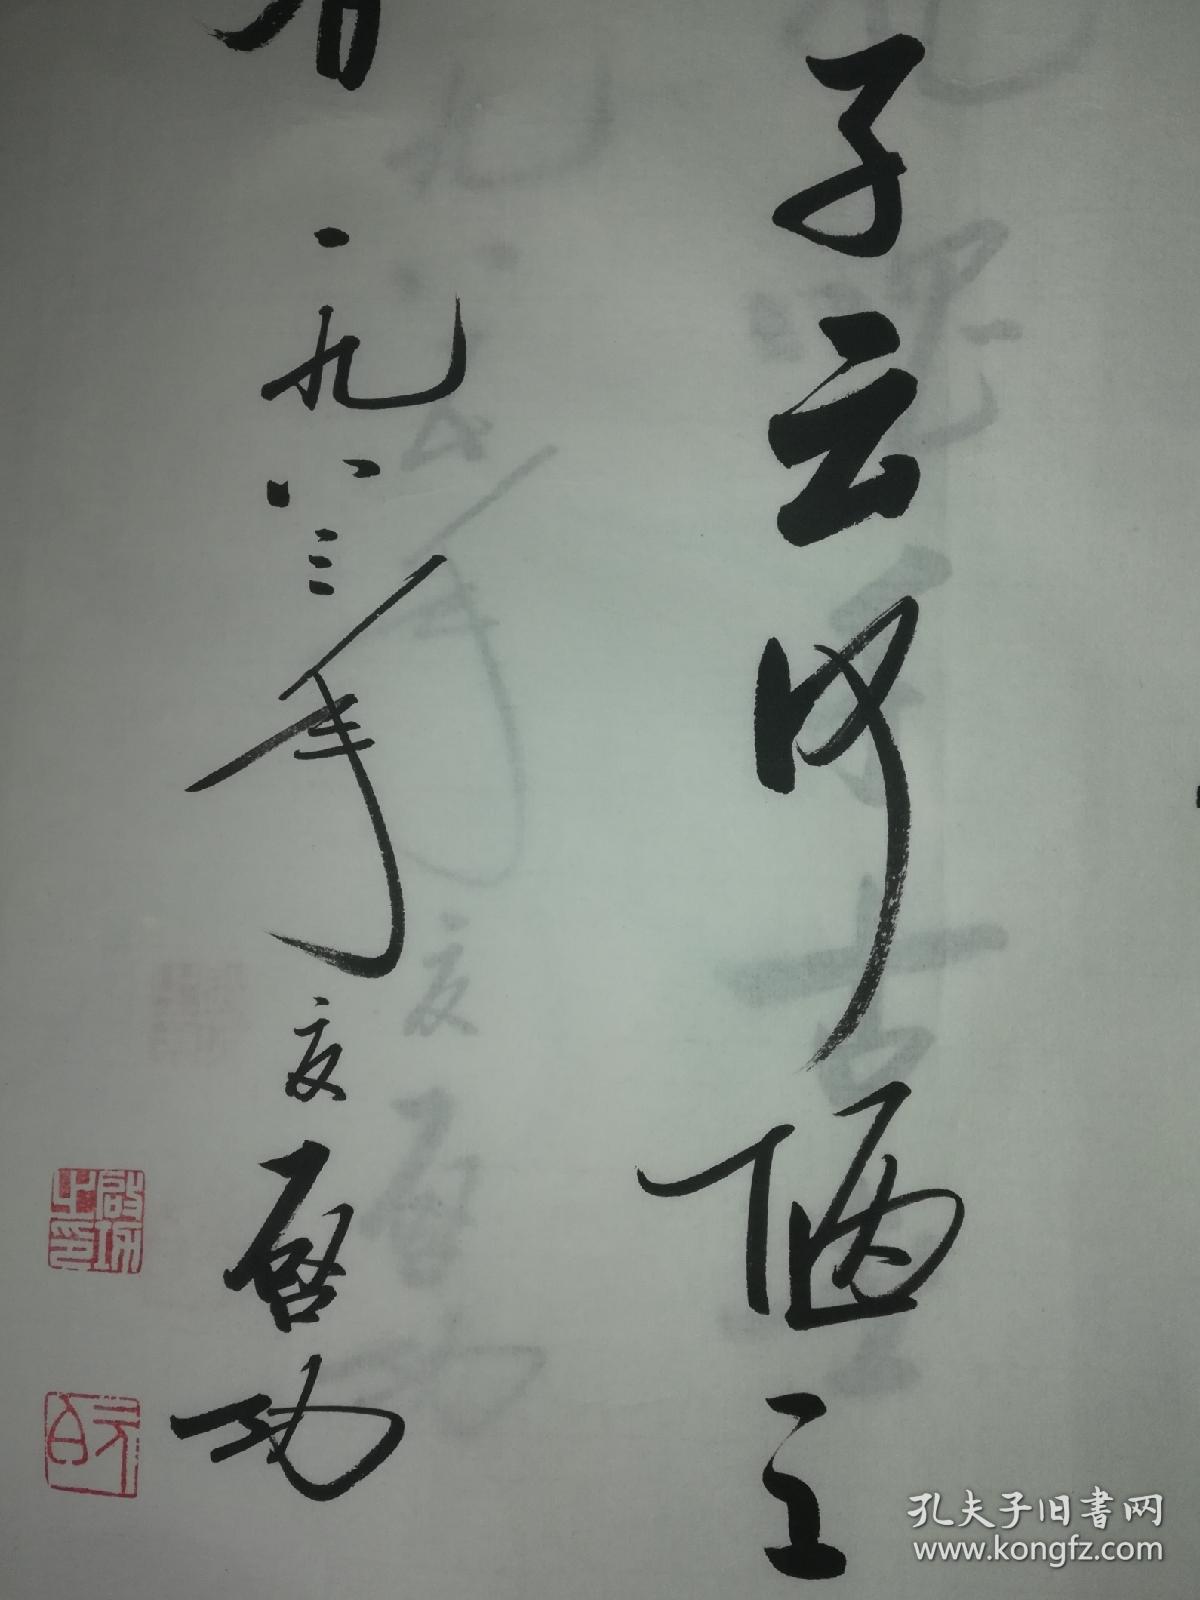 子云何陋之
一九八三年夏启功
启功之印
孔夫子旧書网
www.kongfz.com